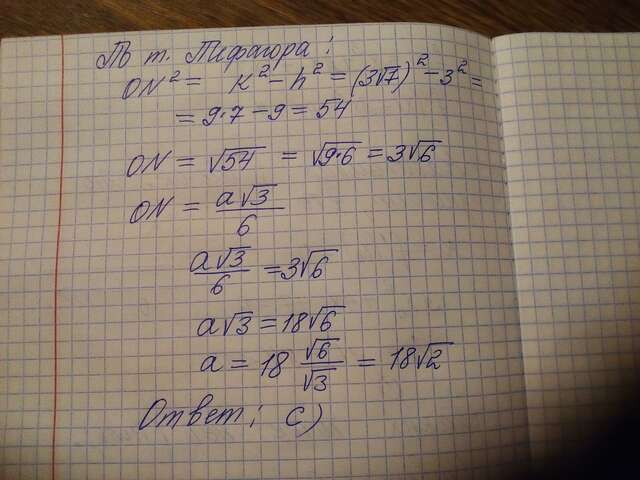 По т. Пифагора:
ON² = k² - h² = (3√7)² - 3² =
= 9·7 - 9 = 54
ON = √54 = √9·6 = 3√6
ON = a√3/6
a√3/6 = 3√6
a√3 = 18√6
a = 18 √6/√3 = 18√2
Ответ: C)